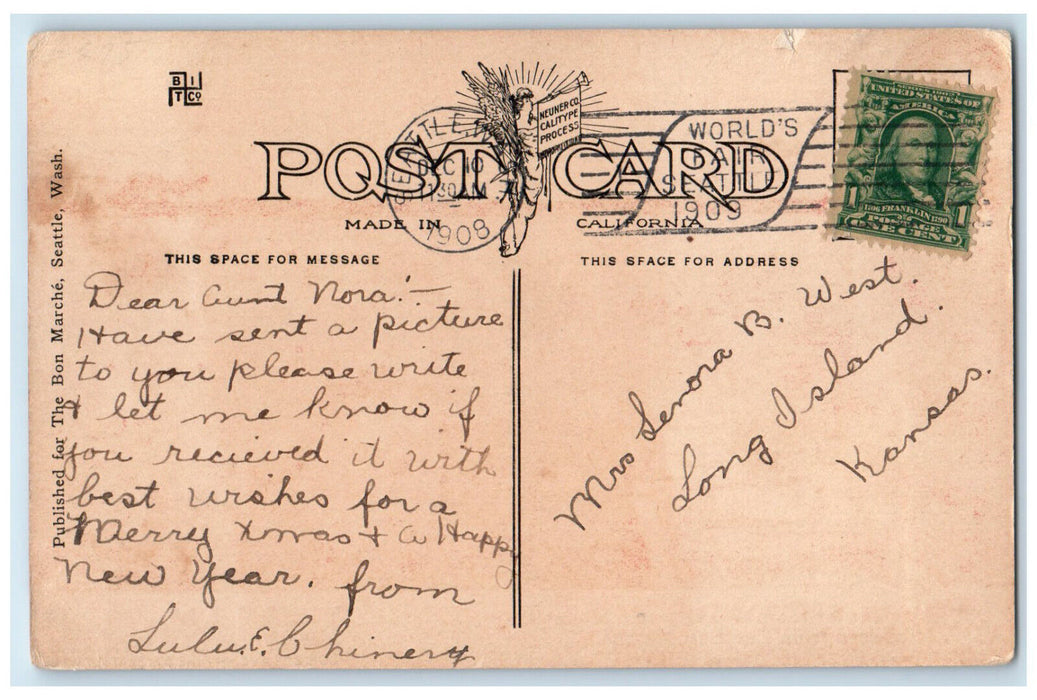 B I
T Co
NEUNER CO.
CALITYPE
PROCESS
POST CARD
MADE IN CALIFORNIA
SEATTLE, W
DEC 10
11 30 AM
1908
WORLD'S
FAIR
SEATTLE
1909
SERIES 1902
UNITED STATES OF
AMERICA
1706 FRANKLIN 1790
1 POSTAGE 1
ONE CENT
Published for The Bon Marché, Seattle, Wash.
THIS SPACE FOR MESSAGE
Dear Aunt Nora!—
Have sent a picture
to you please write
& let me know if
you recieved it with
best wishes for a
Merry Xmas + a Happy
New Year. from
Lulu E. Chinery
THIS SPACE FOR ADDRESS
Mrs Lenora B. West.
Long Island.
Kansas.